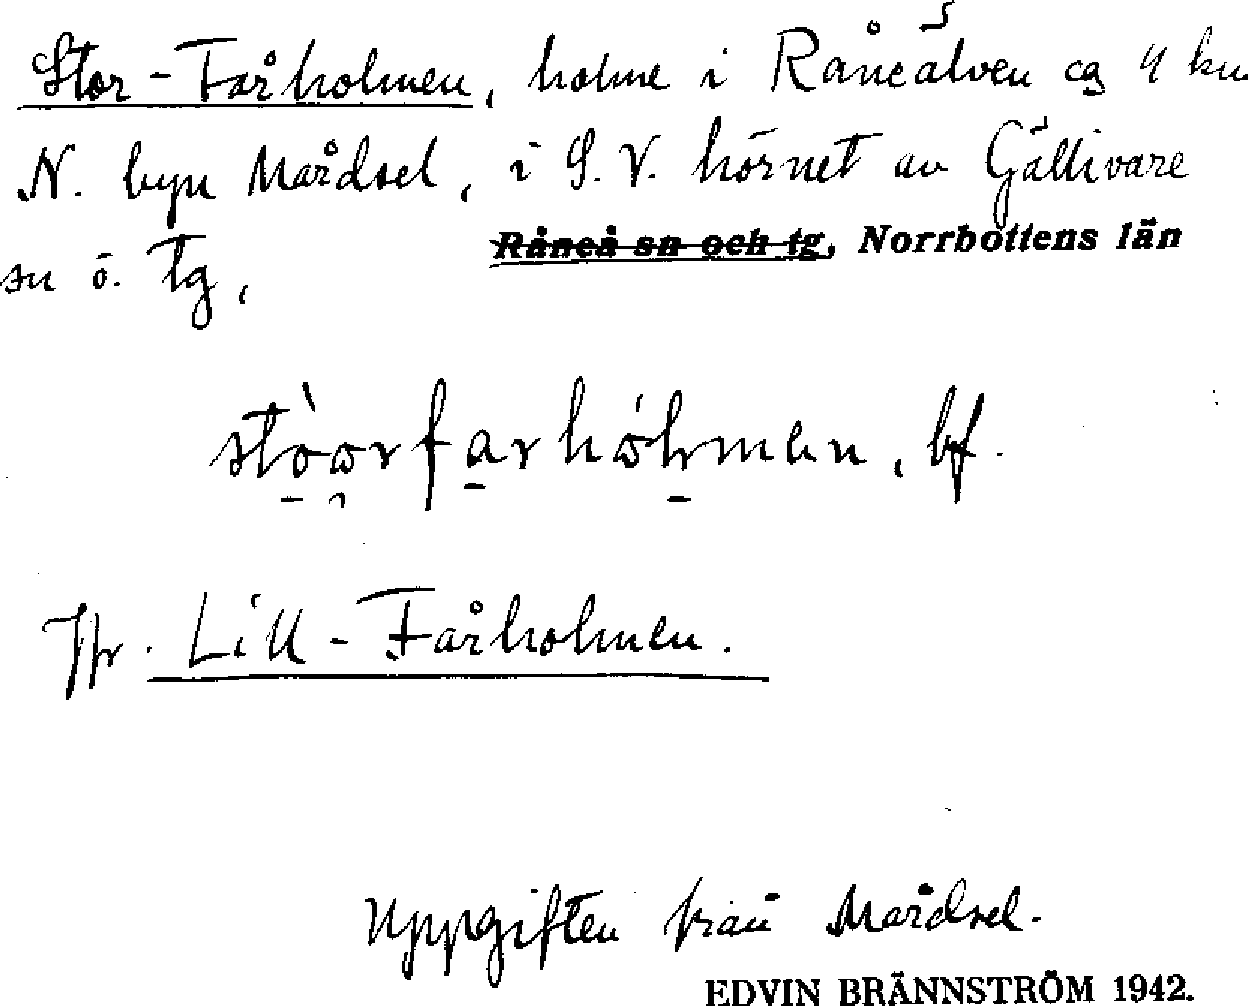 Stor-Fårholmen, holme i Råneälven ca 4 km
N. byn Mårdsel, i S.V. hörnet av Gällivare
Råneå sn och tg, Norrbottens län
sn o. tg,
stòorfarhól̥men, bf.
Jfr. Lill-Fårholmen.
Uppgiften från Mårdsel.
EDVIN BRÄNNSTRÖM 1942.